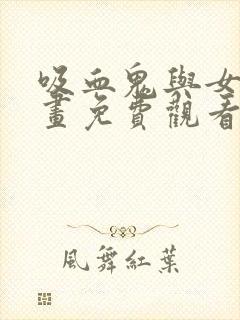 吸血鬼與女
畫免費觀看
風舞紅葉